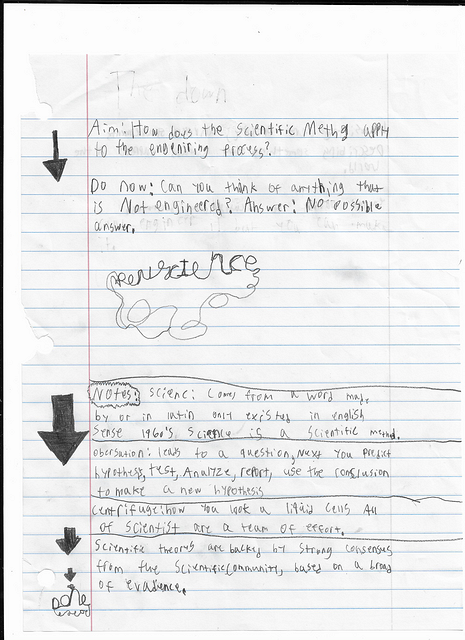 Aim: How does the Scientific Methd apply
to the engeniring process?
Do now: Can you think of anything that
is Not engineered? Answer: No possible
answer.
science
Notes: Science: Comes from a word made
by or in latin only existed in english
Sense 1960's Science is a Scientific method.
obersation: leads to a question, Next you Predict
hypothesis, test, Analyze, report, use the conclusion
to make a new hypothesis
centrifuge: how you look a liquid cells All
of Scientist are a team of effort.
Scientific theorys are backed by strong consenses
from the Scientific community, based on a broad
of evadience.
Done